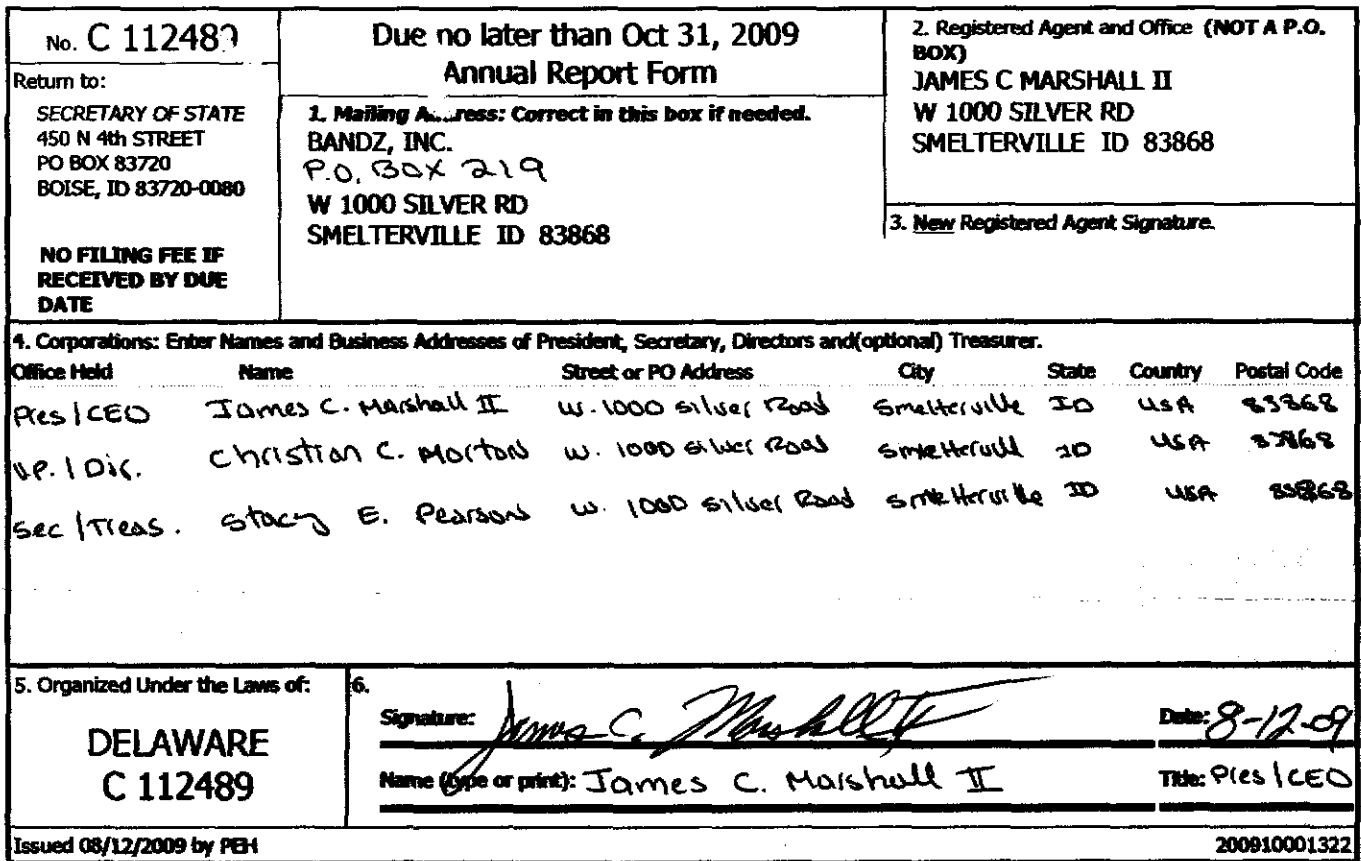 No. C 112489
Return to:
SECRETARY OF STATE
450 N 4th STREET
PO BOX 83720
BOISE, ID 83720-0080
NO FILING FEE IF
RECEIVED BY DUE
DATE
Due no later than Oct 31, 2009
Annual Report Form
1. Mailing A...ress: Correct in this box if needed.
BANDZ, INC.
P.O. BOX 219
W 1000 SILVER RD
SMELTERVILLE ID 83868
2. Registered Agent and Office (NOT A P.O.
BOX)
JAMES C MARSHALL II
W 1000 SILVER RD
SMELTERVILLE ID 83868
3. New Registered Agent Signature.
4. Corporations: Enter Names and Business Addresses of President, Secretary, Directors and(optional) Treasurer.
Office Held Name Street or PO Address City State Country Postal Code
Pres/CEO James C. Marshall II W. 1000 Silver Road Smelterville ID USA 83868
V.P. / Dir. Christian C. Morton W. 1000 Silver Road Smeltervill ID USA 83868
Sec/Treas. Stacy E. Pearson W. 1000 Silver Road Smelterville ID USA 83868
5. Organized Under the Laws of:
DELAWARE
C 112489
6.
Signature: James C. Marshall II Date: 8-12-09
Name (type or print): James C. Marshall II Title: Pres/CEO
Issued 08/12/2009 by PEH 200910001322